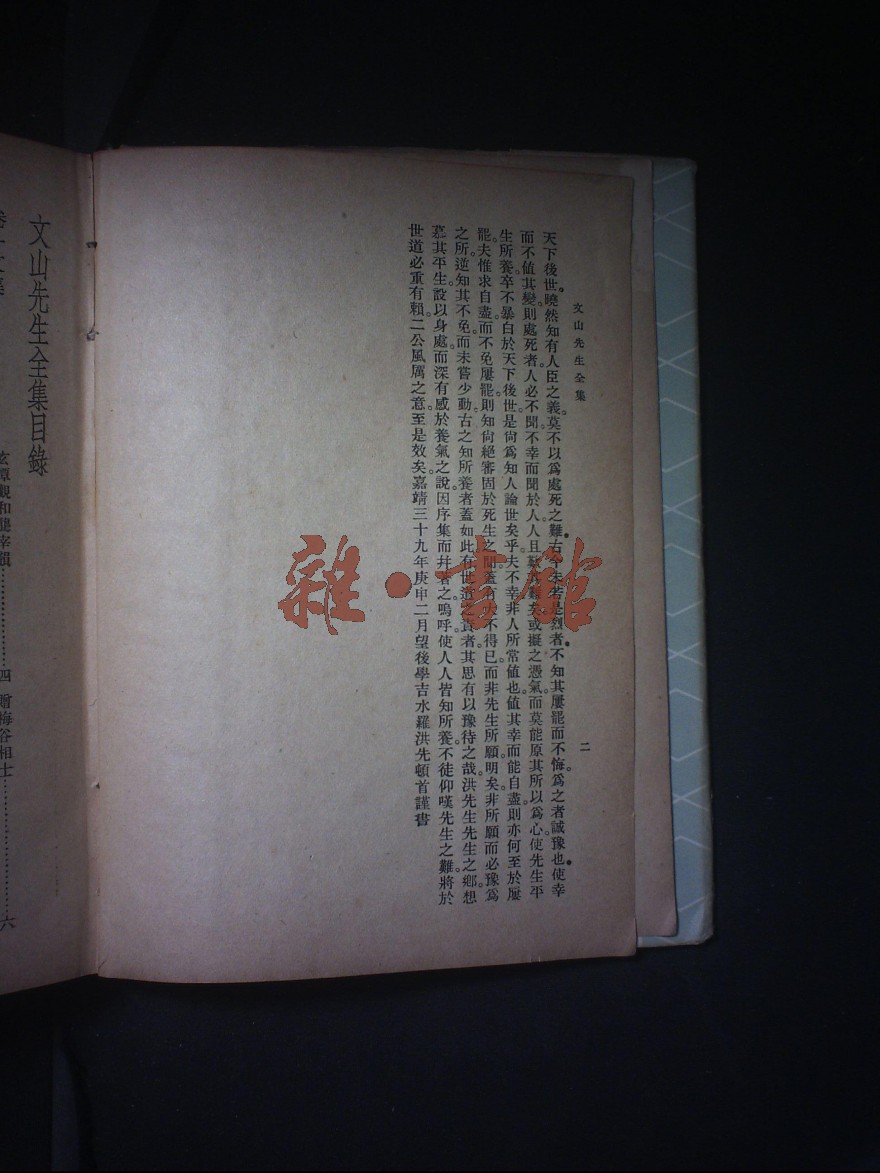 文山先生全集
二
天下後世曉然知有人臣之義莫不以爲處死之難古今未若是烈者不知其屢罷而不悔爲之者誠豫也使幸
而不値其變則處死者人必不聞不幸而聞於人人且 難矣或擬之憑氣而莫能原其所以爲心使先生平
生所養卒不暴白於天下後世是尙爲知人論世矣乎夫不幸非人所常値也値其幸而能自盡則亦何至於屢
罷夫惟求自盡而不免屢罷則知尙絕審固於死生之間蓋有大不得已而非先生所願明矣非所願而必豫爲
之所逆知其不免而未嘗少動古之知所養者蓋如此有世道之責者其思有以豫待之哉洪先生先生之鄕想
慕其平生設以身處而深有感於養氣之說因序集而幷著之嗚呼使人人皆知所養不徒仰嘆先生之難將於
世道必重有賴二公風厲之意至是效矣嘉靖三十九年庚申二月望後學吉水羅洪先頓首謹書
文山先生全集目錄
四 贈梅谷相士
六
雜·書館